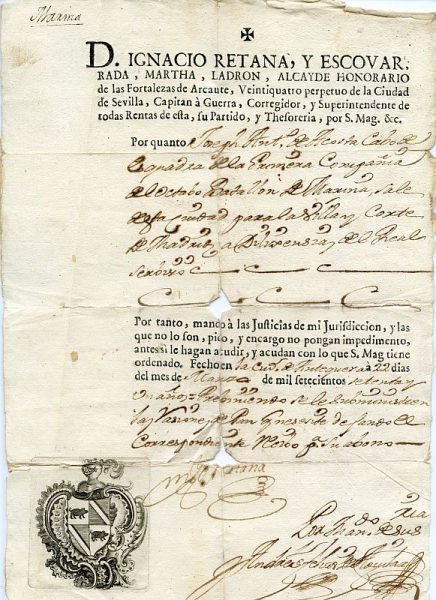 Marina
D. IGNACIO RETANA, Y ESCOVAR,
RADA, MARTHA, LADRON, ALCAYDE HONORARIO
de las Fortalezas de Arcaute, Veintiquatro perpetuo de la Ciudad
de Sevilla, Capitàn à Guerra, Corregidor, y Superintendente de
todas Rentas de esta, su Partido, y Thesoreria, por S. Mag. &c.
Por quanto Joseph Ant.º de Acosta Cabo de
esquadra de la Primera Compañia
del octabo Batallon de Marina, sale
de esta ciudad para la Villa y Corte
de Madrid a Dilixensias del Real
servisio
Por tanto, mando à las Justicias de mi Jurisdiccion, y las
que no lo son, pido, y encargo no pongan impedimento,
antes si le hagan acudir, y acudan con lo que S. Mag tiene
ordenado. Fecho en la Ciud. de Antequera à 22 dias
del mes de Marzo de mil setecientos setenta y
un años Previniendo se le subministren
las Rasiones de Pan
Correspondiente Resivo p.ª su abono
Retana
Por Man.do de su sria